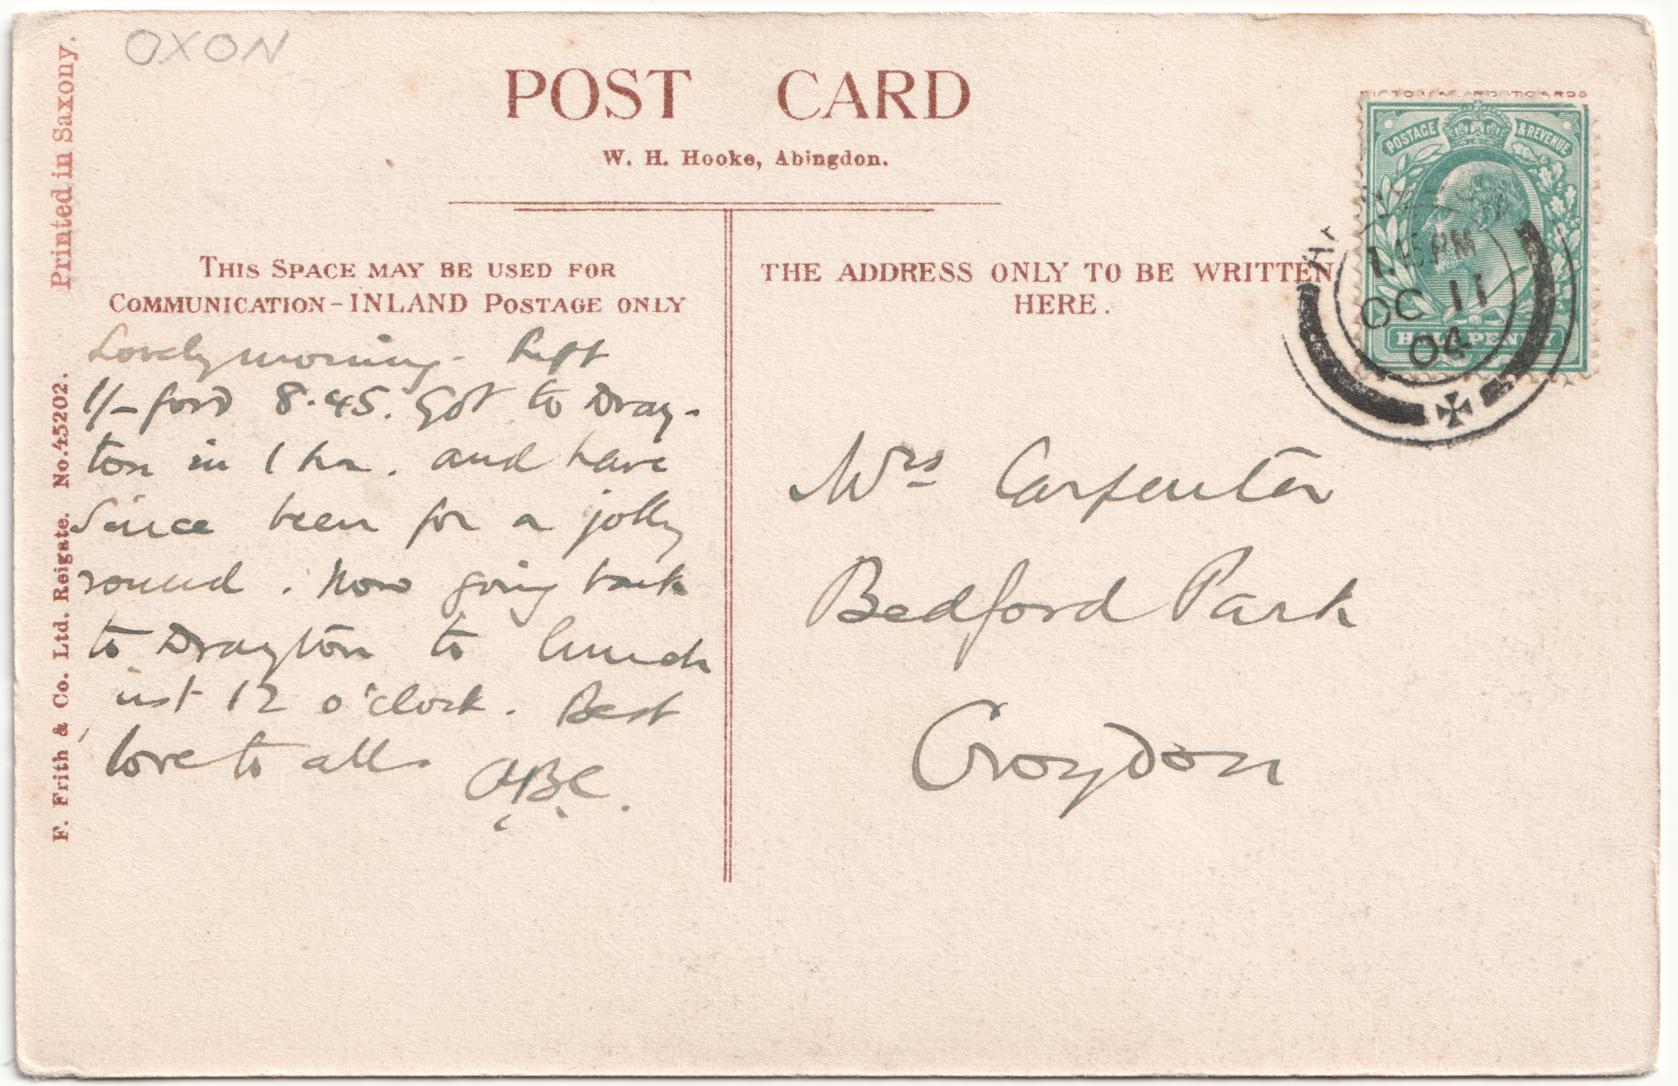 OXON
POST CARD
W. H. Hooke, Abingdon.
Printed in Saxony.
F. Frith & Co. Ltd. Reigate. No. 45202.
THIS SPACE MAY BE USED FOR
COMMUNICATION - INLAND POSTAGE ONLY
THE ADDRESS ONLY TO BE WRITTEN
HERE.
POSTAGE & REVENUE
HALFPENNY
1.45 PM
OC 11
04
Lovely morning. Left
1/-ford 8.45. Got to Dray-
ton in 1 hr. and have
since been for a jolly
round. Now going back
to Drayton to lunch
just 12 o'clock. Best
love to all.
Mrs Carpenter
Bedford Park
Croydon